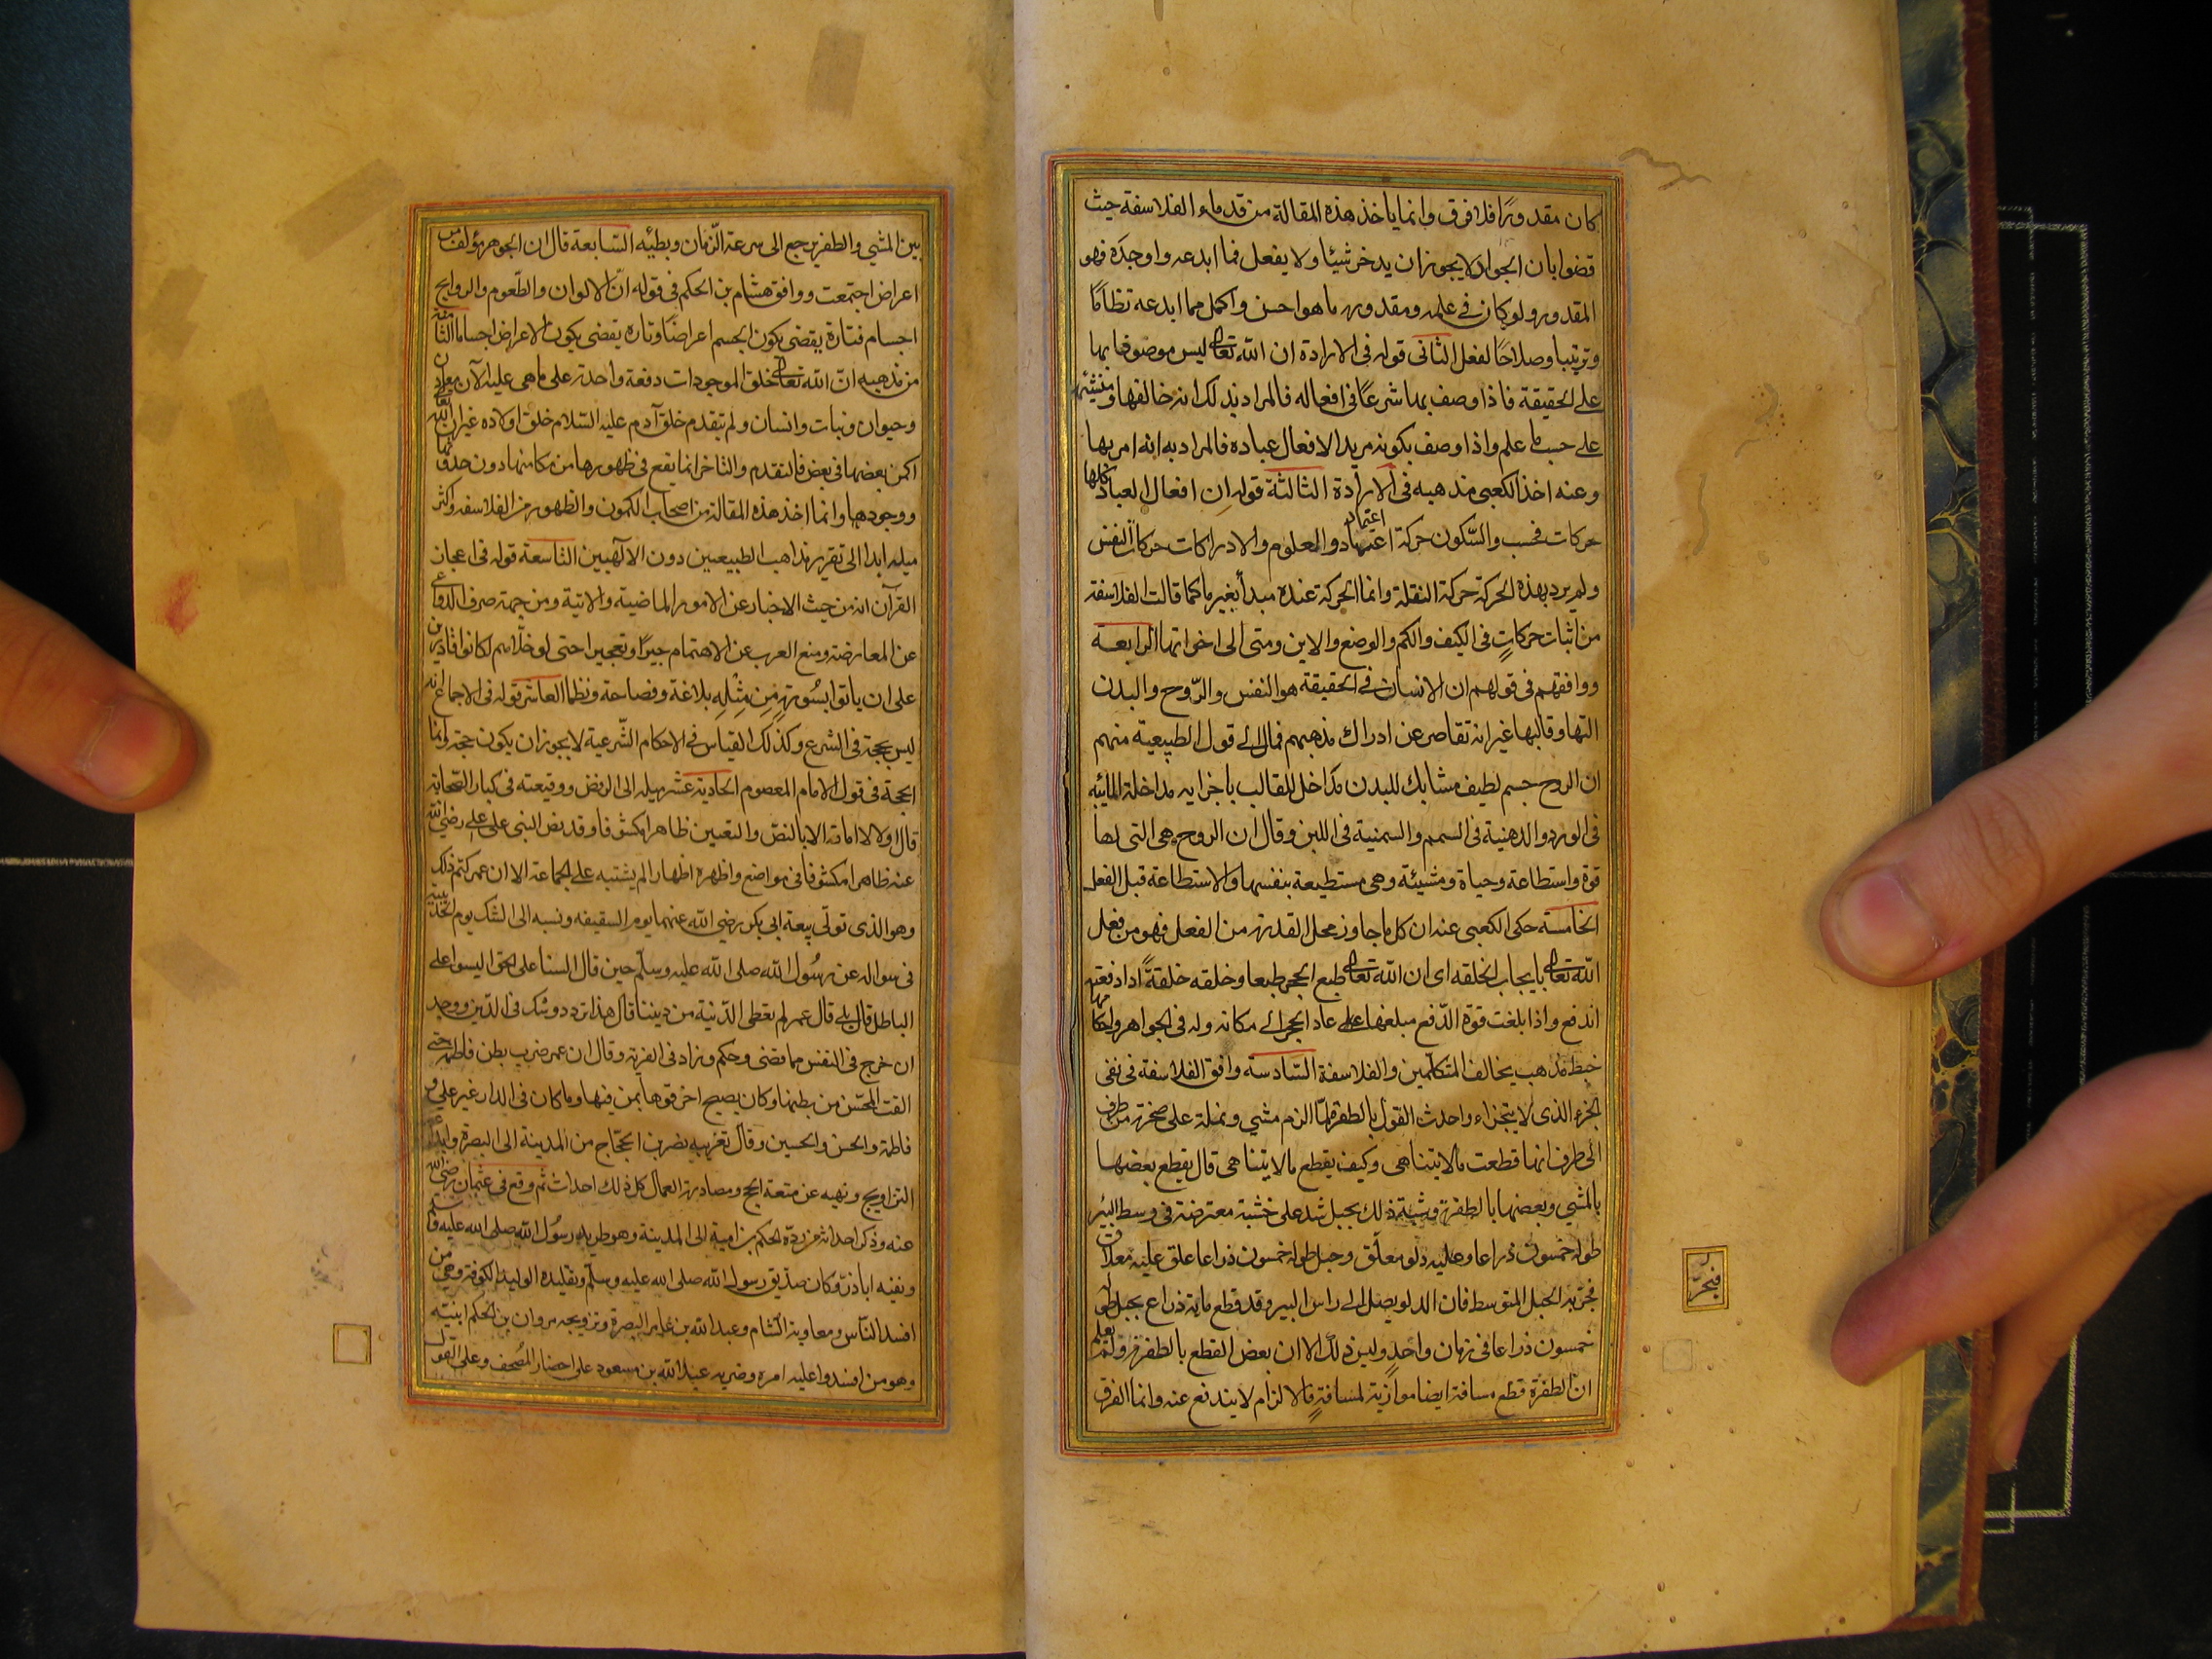 كان مقدورًا فلا فرق وانما ياخذ هذه المقالة من قدماء الفلاسفة حيث
قضوا بان الجواد لا يجوز ان يدخر شيئا ولا يفعل فما ابدعه واوجده فهو
المقدور ولو كان في علمه ومقدوره ما هو احسن واكمل مما ابدعه نظامًا
وترتيبا وصلاحًا لفعل الثانى قوله فى الارادة ان الله تعالى ليس موصوفا بها
على الحقيقة فاذا وصف بها شرعًا فى افعاله فالمراد بذلك انه خالقها ومنشئها
على حسب ما علم واذا وصف بكونه مريدا لافعال عباده فالمراد به انه امر بها
وعنه اخذ الكعبى مذهبه فى الارادة الثالثة قوله ان افعال العباد كلها
حركات فحسب والسّكون حركة اعتماد والعلوم والادراكات حركات النفس
ولم يرد بهذه الحركة حركة النقلة وانما الحركة عنده مبدأ تغير ما كما قالت الفلاسفة
من اثبات حركاتٍ فى الكيف والكم والوضع والاين ومتى الى اخواتها الرابعة
ووافقهم فى قولهم ان الانسان فى الحقيقة هو النفس والرّوح والبدن
التها وقالبها غير انه تقاصر عن ادراك مذهبهم فمال الى قول الطبيعية منهم
ان الروح جسم لطيف مشابك للبدن مداخل للقالب باجزايه مداخلة المائية
فى الورد والدهنية فى السمسم والسمنية فى اللبن وقال ان الروح هى التى لها
قوة واستطاعة وحياة ومشيئة وهى مستطيعة بنفسها والاستطاعة قبل الفعل
الخامسة حكى الكعبى عنه ان كل ما جاوز محل القدرة من الفعل فهو من فعل
الله تعالى بايجاب الخلقه اى ان الله تعالى طبع الحجر طبعا وخلقه خلقةً اذا دفعته
اندفع واذا بلغت قوة الدّفع مبلغها عاد الحجر الى مكانه وله فى الجواهر واحكامها
خبط مذهب يخالف المتكلّمين والفلاسفة السّادسة وافق الفلاسفة فى نفى
الجزء الذى لا يتجزاء واحدث القول بالطفرة لمّا الزم مشي ونملة على صخرة من طرف
الى طرف انها قطعت ما لا يتناهى وكيف يقطع ما لا يتناهى قال يقطع بعضها
بالمشي وبعضها بالطفرة وشبه ذلك بحبل شد على خشبة معترضة فى وسط البئر
طوله خمسون ذراعا وعليه دلو معلّق وحبل طوله خمسون ذراعا علق عليه معلاق
فجرّ به الحبل المتوسط فان الدلو يصل الى راس البير وقد قطع ماية ذراع بحبل طوله
خمسون ذراعا فى زمان واحدٍ وليس ذلك الا ان بعض القطع بالطفرة ولم يعلم
ان الطفرة قطع مسافة ايضا موازية لمسافةٍ فالالزام لا يندفع عنه وانما الفرق
بين المشي والطفر يرجع الى سرعة الزّمان وبطئه السّابعة قال ان الجوهر مؤلف من
اعراض اجتمعت ووافق هشام بن الحكم فى قوله انّ الالوان والطّعوم والروايح
اجسام فتارة يقضى بكون الجسم اعراضًا وتارة يقضى بكون الاعراض اجساما الثامنة
من مذهبه انّ الله تعالى خلق الموجودات دفعة واحدة على ما هى عليه الآن معادن
وحيوان ونبات وانسان ولم يتقدم خلق آدم عليه السّلام خلق اولاده غير ان الله تعالى
اكمن بعضها فى بعض فالتقدم والتاخر انما يقع فى ظهورها من مكامنها دون حدوثها
ووجودها وانما اخذ هذه المقالة من اصحاب الكمون والظهور من الفلاسفه واكثر
ميله ابدا الى تقرير مذاهب الطبيعيين دون الالهيين التاسعة قوله فى اعجاز
القرآن انه من حيث الاخبار عن الامور الماضية والاتية ومن جهة صرف الدواعى
عن المعارضة ومنع العرب عن الاهتمام جبرًا وتعجيزا حتى لو خلّاهم لكانوا قادرين
على ان ياتوا بسُورةٍ مِن مِثْلِه بلاغة وفصاحة ونظما العاشرة قوله فى الاجماع انه
ليس بحجة فى الشرع وكذلك القياس فى الاحكام الشّرعية لا يجوز ان يكون حجة وانما
الحجة فى قول الامام المعصوم الحادية عشر ميله الى الرفض ووقيعته فى كبار الصّحابة
قال اولا لا امامة الا بالنصّ والتعيين ظاهرا مكشوفا وقد نص النبى على على رضى الله
عنه ظاهرا مكشوفا فى مواضع واظهره اظهارا لم يشتبه على الجماعة الا ان عمر كتم ذلك
وهو الذى تولّى بيعة ابى بكر رضي الله عنهما يوم السقيفه ونسبه الى الشك يوم الحديبية
فى سواله عن رسُول الله صلى الله عليه وسلّم حين قال السنا على الحق اليسوا على
الباطل قال بلى قال عمر لم نعطى الدّنية من ديننا قال هذا تردد وشك فى الدّين ووجد
ان حرج فى النفس مما قضى وحكم وزاد فى الفرية وقال ان عمر ضرب بطن فاطمة حتى
القت المحسّن من بطنها وكان يصيح احرقوها بمن فيها وما كان فى الدار غير على و
فاطمة والحسن والحسين وقال تغريبه نصر بن الحجّاج من المدينة الى البصرة وابداع
التراويح ونهيه عن متعة الحج ومصادرة العمال كل ذلك احداث ثم وقع فى عثمان رضى الله
عنه وذكر احداثه من ردّه الحكم بن امية الى المدينة وهو طريد رسُول الله صلى الله عليه وسلّم
ونفيه اباذرّ وكان صدّيق رسول الله صلى الله عليه وسلّم وتقليده الوليد الكوفة وهى من
افسد النّاس ومعاوية الشام وعبد الله بن عامر البصرة وتزويجه مروان بن الحكم ابنته
وهو من افسدوا عليه امره وضربه عبد الله بن مسعود على احضار المُصحف وعلى القول